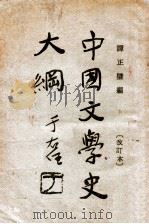 譚正璧編
中國文學史
大綱
（改訂本）
于右任